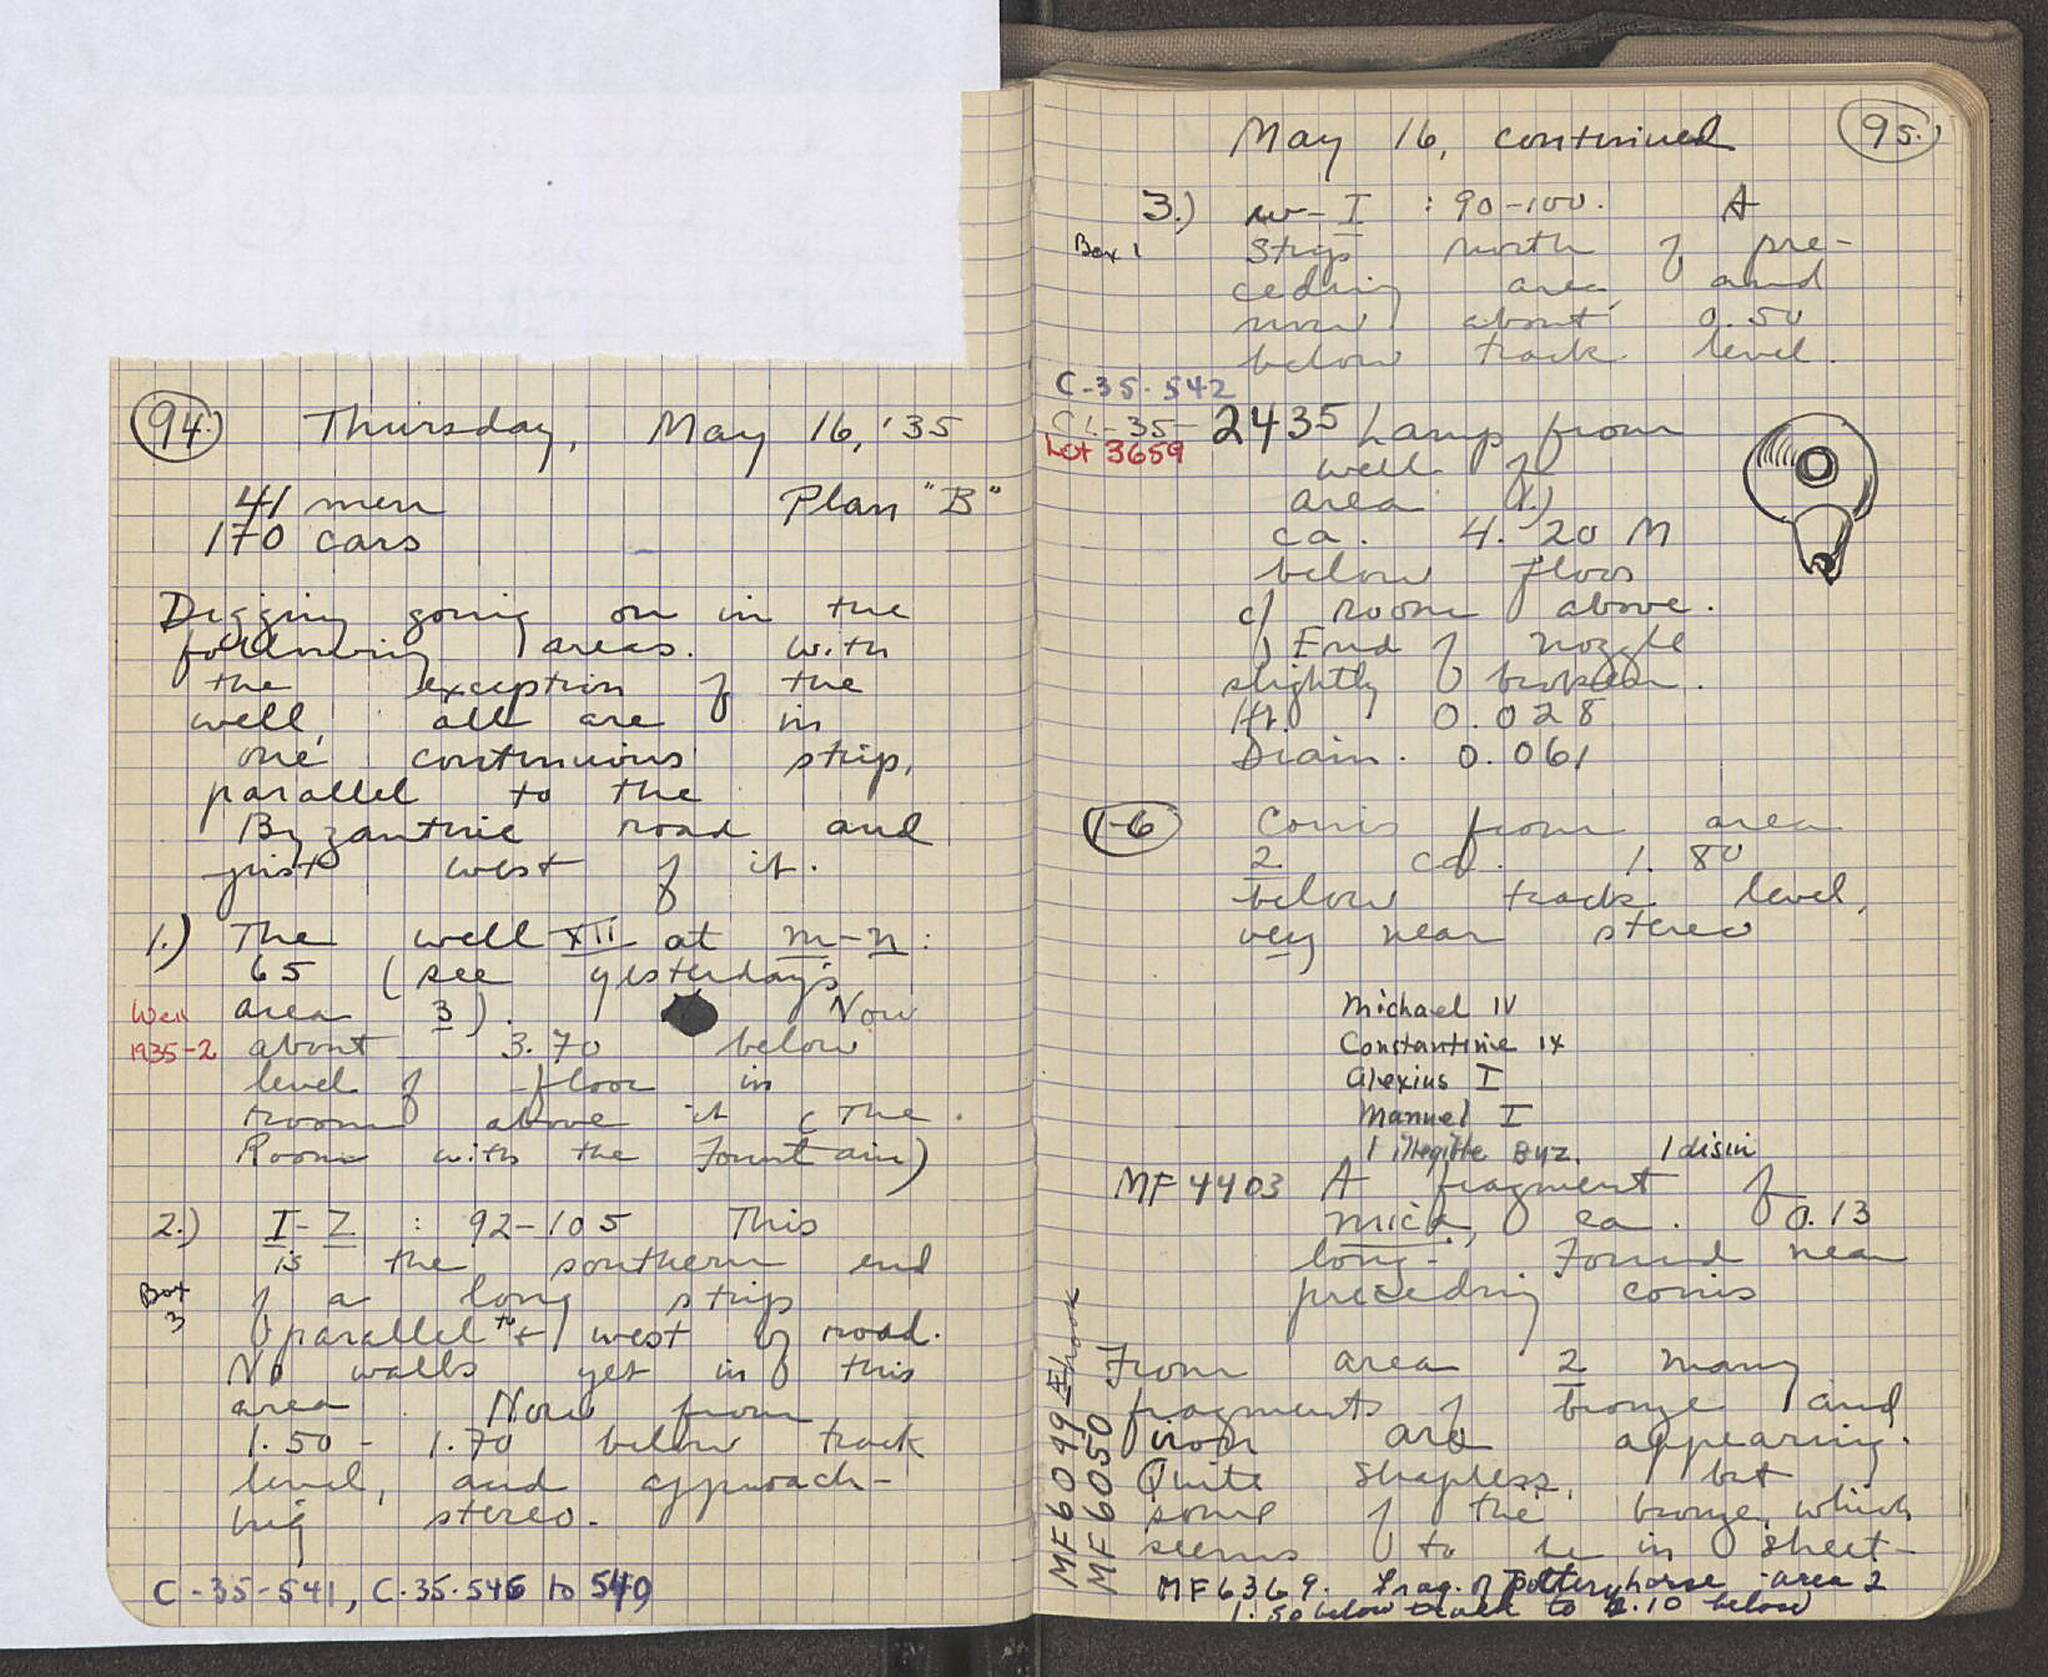 94.
Thursday, May 16, '35
41 men Plan "B"
170 cars
Digging going on in the
following areas. with
the exception of the
well, all are in
one continuous strip,
parallel to the
Byzantine road and
just west of it.
1.) The well XII at m-n:
65 (see yesterday's
Well area 3). Now
1935-2 about 3.70 below
level of floor in
room above it (The
Room with the Fountain)
2.) I-Z : 92-105 This
is the southern end
Box 3 of a long strip
parallel to + west of road.
No walls yet in this
area. Now from
1.50 - 1.70 below track
level, and approach-
ing stereo.
C-35-541, C-35-546 to 549
95.
May 16, continued
3.) w-I : 90-100. A
Box 1 Strip north of pre-
ceding area, and
now about 0.50
below track level.
C-35-542
CL-35- 2435 Lamp from
Lot 3659
well of
area (1.)
ca. 4.20 M
below floor
of room above.
End of nozzle
slightly broken.
Ht. 0.028
Diam. 0.061
1-6 Coins from area
2 ca. 1.80
below track level,
very near stereo
Michael IV
Constantine IX
Alexius I
Manuel I
1 illegible Byz. 1 disin
MF 4403 A fragment of
mica, ca. 0.13
long. Found near
preceding coins
From area 2 many
fragments of bronze and
iron are appearing.
Quite shapless, but
some of the bronze, which
seems to be in sheet-
MF 6049 hook
MF 6050
MF 6369. Frag. of pottery horse - area 2
1.50 below track to 2.10 below